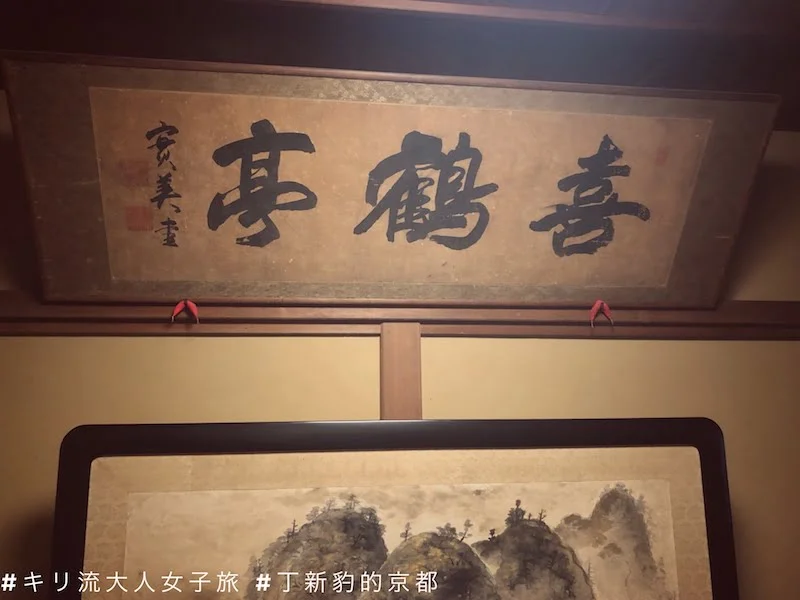 喜鶴亭
實美書
#キリ流大人女子旅 #丁新豹的京都